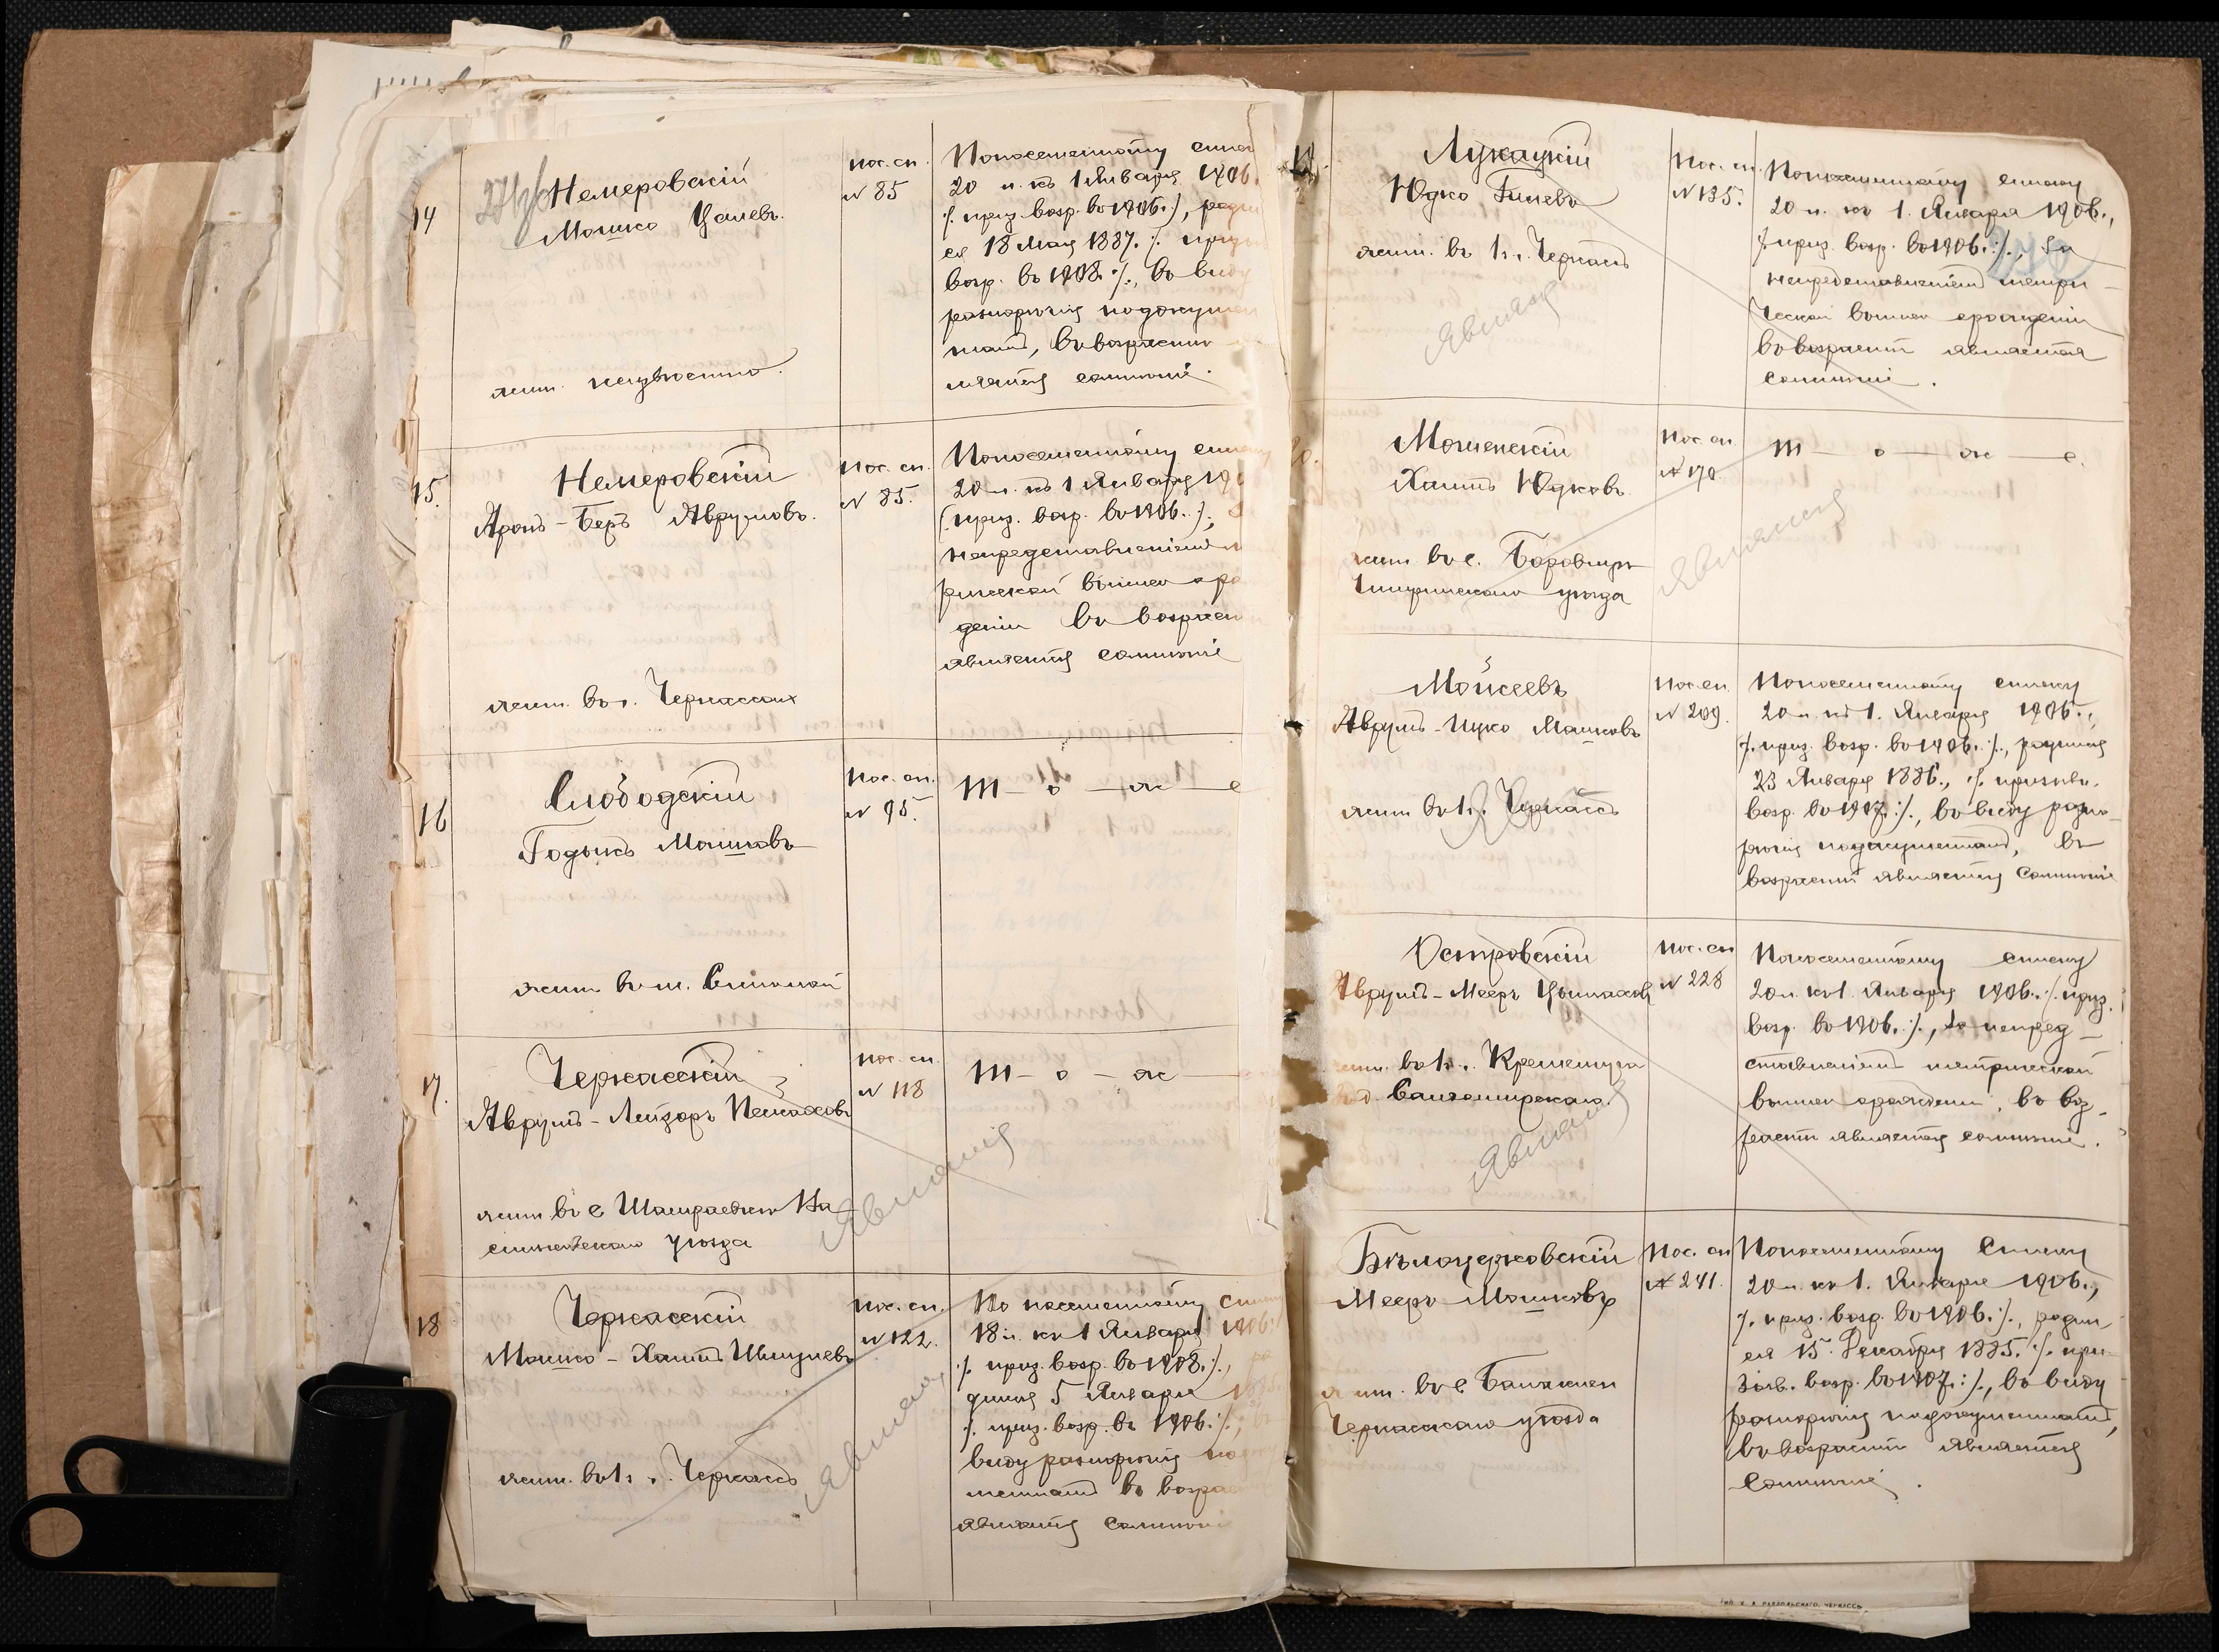 14
Немеровскій
Мошко Цалевъ.
жит. неизвѣстно.
пос. сп.
№ 85
Попосемейному списк
20 л. къ 1 Января 1906.
/: приз. возр. въ 1906.:/, роди
ся 18 Мая 1887. /: призы
возр. въ 1908. :/, въ виду
разнорѣчія подокумен
тамъ, въ возрастѣ
ляется сомнѣніе.
15.
Немеровскій
Аронъ-Беръ Аврумовъ.
жит. въ г. Черкассахъ
Пос. сп.
№ 85.
Попосемейному спис
20 л. къ 1 Января 190
(приз. возр. въ 1906.:),
непредставленіемъ м
рической выписи о ро
деніи въ возраст
является сомнѣніе
16
Слободскій
Годыкъ Мошковъ
жит. въ м.
Пос. сп.
№ 95.
Т—о—же—е
17.
Черкасскій
Аврумъ-Лейзоръ Пейсаховъ
жит. въ с Шамраевкѣ Ва
сильковскаго уѣзда
пос. сп.
№ 118
Т—о—же
Явился
18
Черкасскій
Мошко-Хаимъ Шмулевъ
жит. въ г. Черкассы
Пос. сп.
№ 122.
По посемейному спи
18 л. къ 1 Января 1906
/: приз. возр. въ 1908.:/, ро
дился 5 Января 1885
/: приз. возр. въ 1906.:/, въ
виду разнорѣчія под
ментамъ въ возрас
является сомнѣні
Явился
Лукацкій
Юдко Гилевъ
жит. въ г. Черкассы
Явился
Пос. сп.
№ 135.
Попосемейному списку
20 л. къ 1. Января 1906.,
/: приз. возр. въ 1906.:/, за
непредставленіемъ метри-
ческой выписи о рожденіи
въ возрастѣ является
сомнѣніе.
Мошенскій
Хаимъ Юдковъ
жит. въ с. Боровицѣ
Чигиринскаго уѣзда
Пос. сп.
№ 170.
Т—о—же—е.
Явился
Мойсеевъ
Аврумъ-Ицко Мошковъ
жит. въ г. Черкассы
Пос. сп.
№ 209.
Попосемейному списку
20 л. къ 1. Января 1906.,
/: приз. возр. въ 1906.:/, родился
23 Января 1886., /: призывн.
возр. въ 1907.:/, въ виду разно-
рѣчія подокументамъ, въ
возрастѣ является сомнѣніе
Островскій
Аврумъ-Мееръ
жит. въ г. Кременчугѣ
Явился
Пос. сп
№ 228
Попосемейному списку
20 л. къ 1. Января 1906. /: приз.
возр. въ 1906.:/, за непред-
ставленіемъ метрической
выписи о рожденіи, въ воз-
растѣ является сомнѣніе.
Бѣлоцерковскій
Мееръ Мошковъ
жит. въ с. Балаклеѣ
Черкасскаго уѣзда
Пос. сп
№ 241.
Попосемейному списку
20 л. къ 1. Января 1906.,
/: приз. возр. въ 1906.:/, родил
ся 15 Декабря 1885. /: при-
зывн. возр. въ 1907.:/, въ виду
разнорѣчія подокументамъ,
въ возрастѣ является
сомнѣніе.